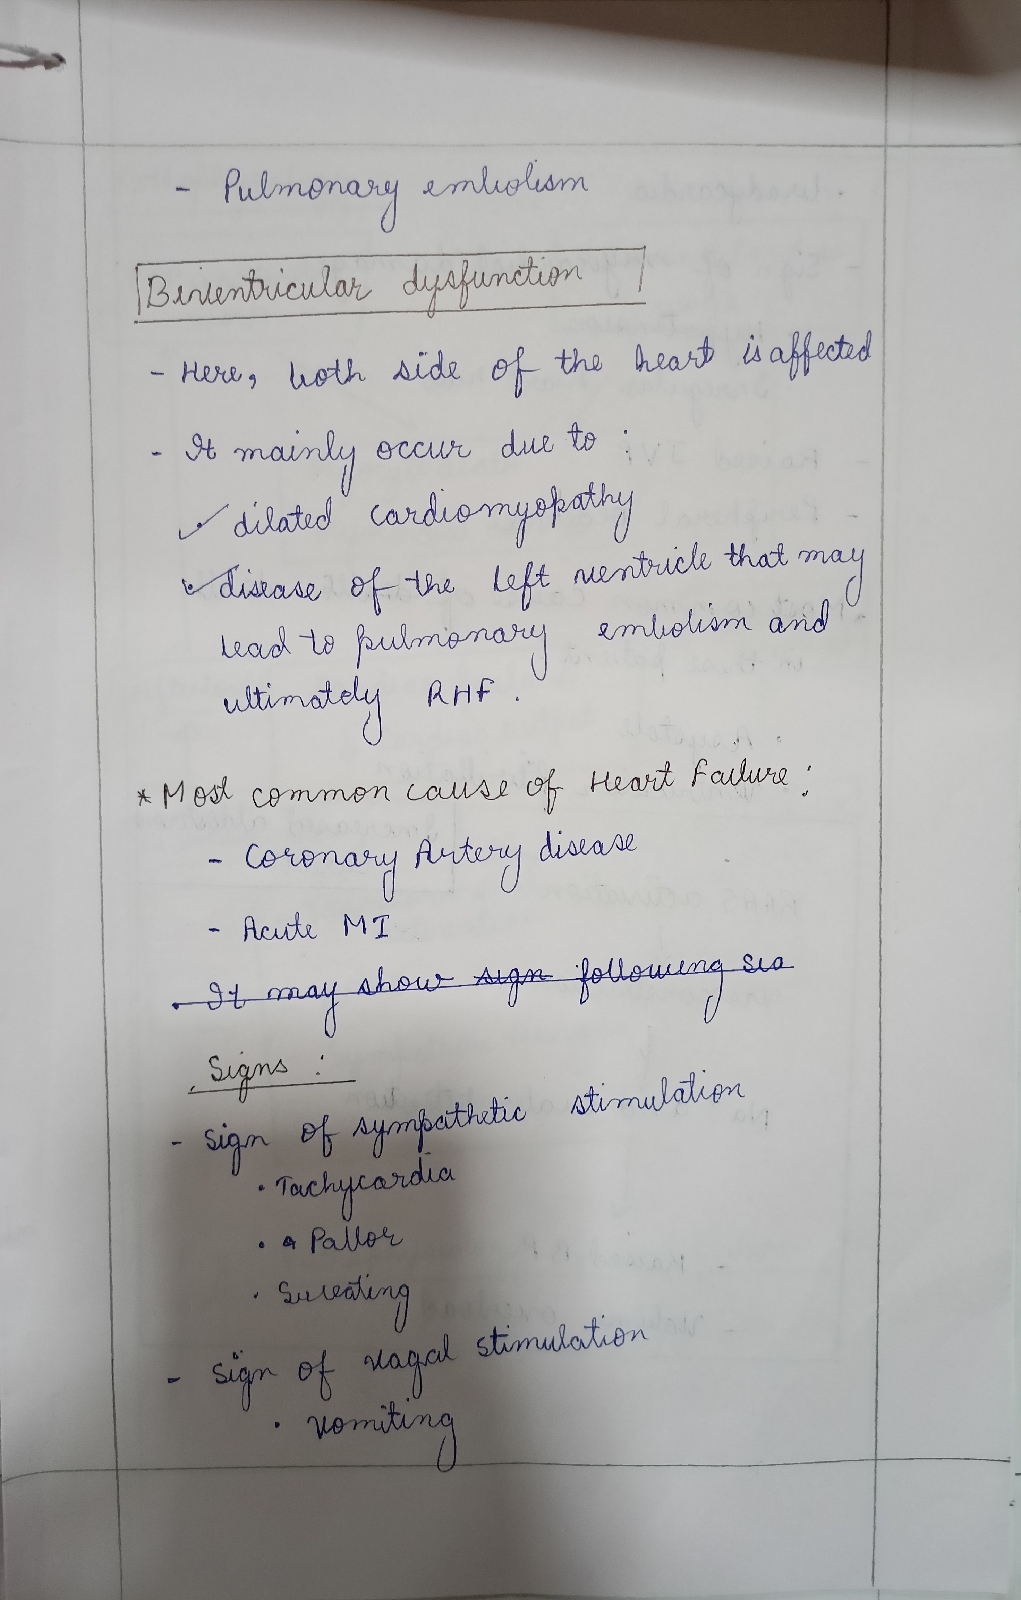 - Pulmonary embolism
Biventricular dysfunction
- Here, both side of the heart is affected
- It mainly occur due to :
✓ dilated cardiomyopathy
✓ disease of the left ventricle that may
lead to pulmonary embolism and
ultimately RHF.
* Most common cause of Heart Failure :
- Coronary Artery disease
- Acute MI
. It may show sign following sia
Signs :
- sign of sympathetic stimulation
• Tachycardia
• Pallor
• Sweating
- sign of vagal stimulation
• vomiting